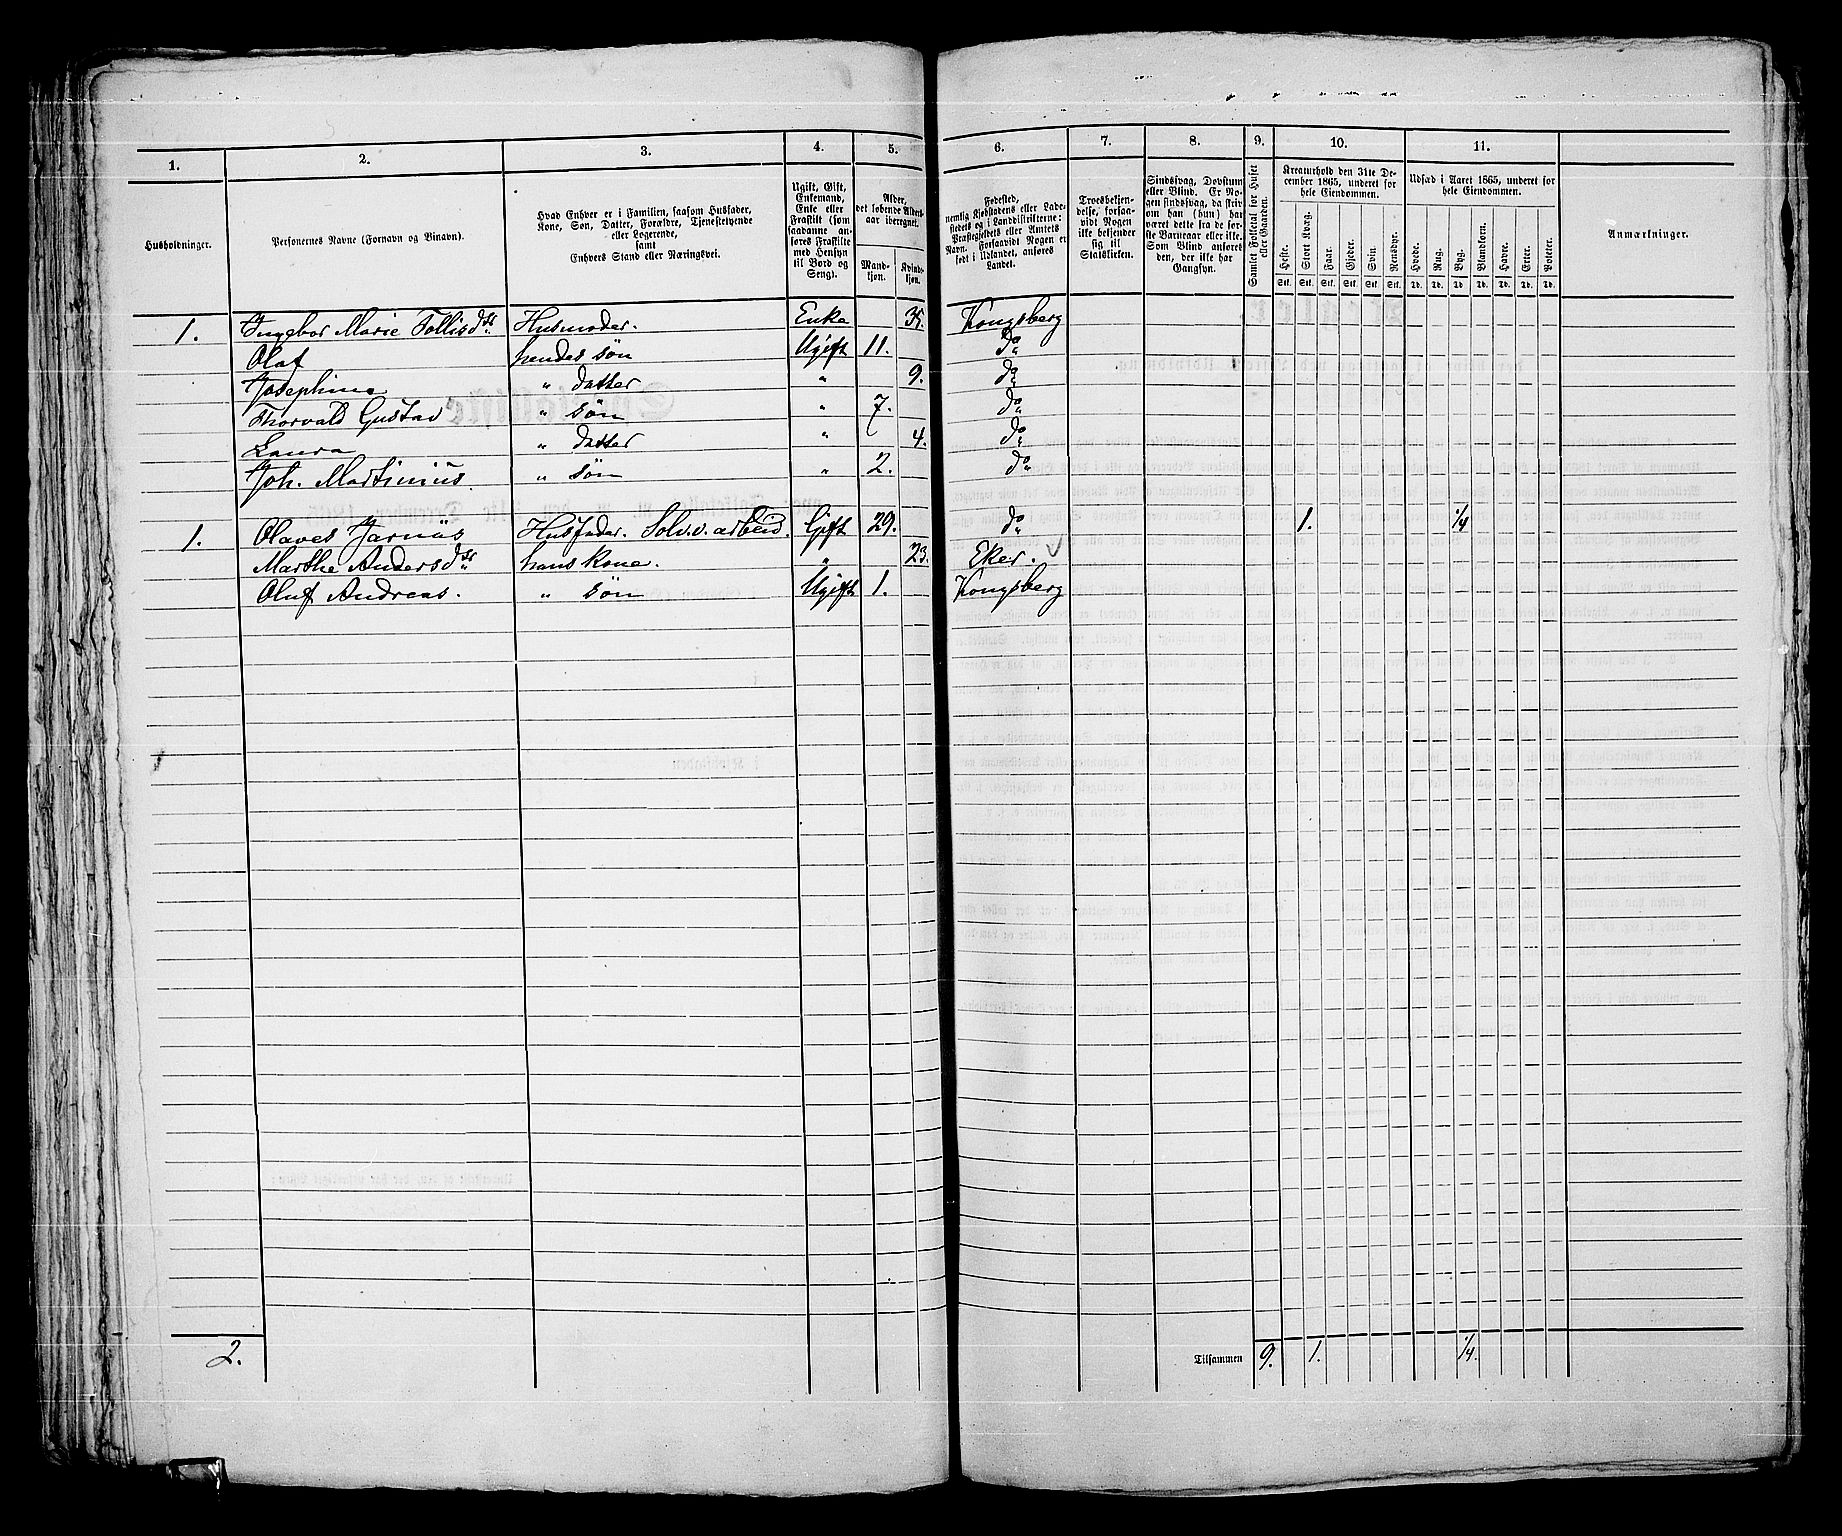 1. 2. 3. 4. 5. 6. 7. 8. 9. 10. 11.
Husholdninger.
Personernes Navne (Fornavn og Binavn).
Hvad Enhver er i Familien, saasom Husfader,
Kone, Søn, Datter, Forældre, Tjenestetyende
eller Logerende,
samt
Enhvers Stand eller Næringsvei.
Ugift, Gift,
Enkemand,
Enke eller
Fraskilt (som
saadanne an-
føres Fraskilte
med Hensyn
til Bord og
Seng).
Alder,
det løbende Alders-
aar iberegnet.
Mand-
kjøn.
Kvinde-
kjøn.
Fødested,
nemlig Kjøbstadens eller Lade-
stedets og i Landdistrikterne:
Præstegjeldets eller Amtets
Navn. Forsaavidt Nogen er
født i Udlandet, anføres
Landet.
Troesbekjen-
delse, forsaa-
vidt Nogen
ikke bekjender
sig til
Statskirken.
Sindssvag, Døvstum
eller Blind. Er No-
gen sindssvag, da skriv
om han (hun) har
været dette fra de før-
ste Barneaar eller ikke.
Som Blind anføres
den, der ikke har
Gangsyn.
Samlet Folketal for Huset
eller Gaarden.
Kreaturhold den 31te De-
cember 1865, underet for
hele Eiendommen.
Heste. Stort Kvæg. Faar. Gjeder. Svin. Rensdyr.
Stk. Stk. Stk. Stk. Stk. Stk.
Udsæd i Aaret 1865, underet for
hele Eiendommen.
Hvede. Rug. Byg. Blandkorn. Havre. Erter. Poteter.
Td. Td. Td. Td. Td. Td. Td.
Anmærkninger.
1. Ingebor Marie Tollisdtr Husmoder. Enke 35. Kongsberg
Olaf hendes søn Ugift 11. do
Josephine " datter " 9. do
Thorvald Gustav " søn " 7. do
Laura " datter " 4. do
Joh. Martinius. " søn " 2. do
1. Olaves Jarnüs Husfader. Solv.v.arbeid. Gift 29. do 1. 1/4
Marthe Andersdtr hans kone. " 23. Eker.
Oluf Andreas. " søn Ugift 1. Kongsberg
2. Tilsammen 9. 1. 1/4.